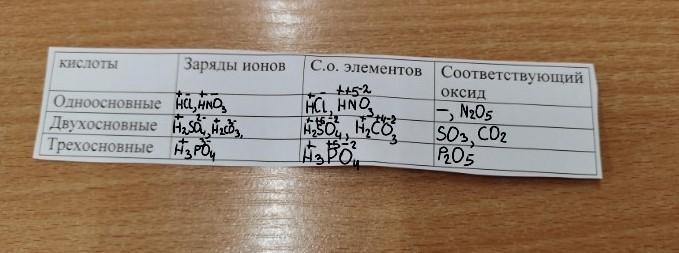 кислоты Заряды ионов С.о. элементов Соответствующий оксид
Одноосновные H⁺Cl⁻, H⁺NO₃⁻ H⁺Cl⁻, H⁺N⁺⁵O₃⁻² –, N₂O₅
Двухосновные H₂⁺SO₄²⁻, H₂⁺CO₃²⁻, H₂⁺S⁺⁶O₄⁻², H₂⁺C⁺⁴O₃⁻² SO₃, CO₂
Трехосновные H₃⁺PO₄³⁻ H₃⁺P⁺⁵O₄⁻² P₂O₅